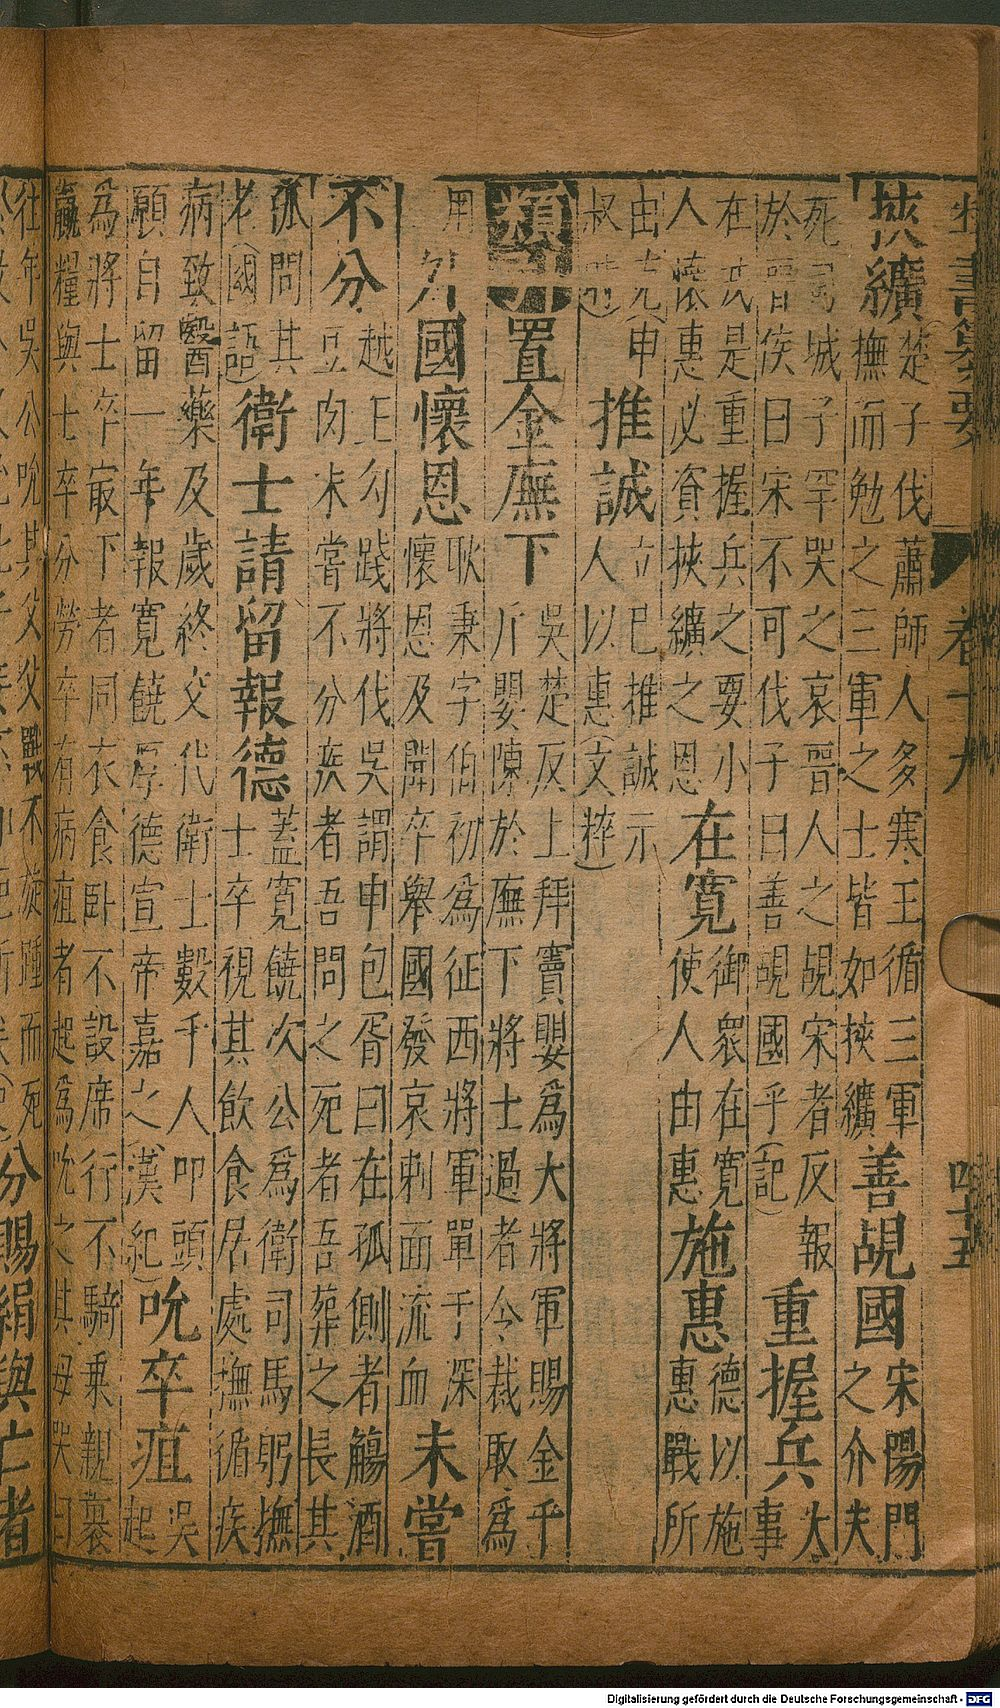 挾纊楚子伐蕭師人多寒王循三軍
撫而勉之三軍之士皆如挾纊善覘國宋陽門
之介夫
死司城子罕哭之哀晉人之覘宋者反報
於晉侯曰宋不可伐子曰善覘國乎(記)重握兵大
事
在戎是重握兵之要小
人懷惠必資挾纊之恩在寬御衆在寬
使人由惠施惠德以施
惠戰所
由克(申
叔造)推誠立巳推誠示
人以惠(文粹)
類對置金廡下吳楚反上拜竇嬰爲大將軍賜金千
斤嬰陳於廡下將士過者令裁取爲
用外國懷恩耿秉字伯初為征西將軍單于深
懷恩及聞卒舉國發哀剌面流血未嘗
不分越王勾踐將伐吳謂申包胥曰在孤側者觴酒
豆肉未嘗不分疾者吾問之死者吾葬之長其
孤問其
老(國語)衛士請留報德蓋寬饒次公爲衛司馬躬撫
士卒視其飲食居處撫循疾
病致醫藥及歲終交代衛士數千人叩頭
願自留一年報寬饒厚德宣帝嘉之(漢紀)吮卒疽吳
起
爲將士卒最下者同衣食臥不設席行不騎乗親裹
贏糧與士卒分勞卒有病疽者起爲吮之其母哭曰
往年吳公吮其父父戰不旋踵而死
分賜絹與亡者
卷十九
四十五
Digitalisierung gefördert durch die Deutsche Forschungsgemeinschaft - DFG